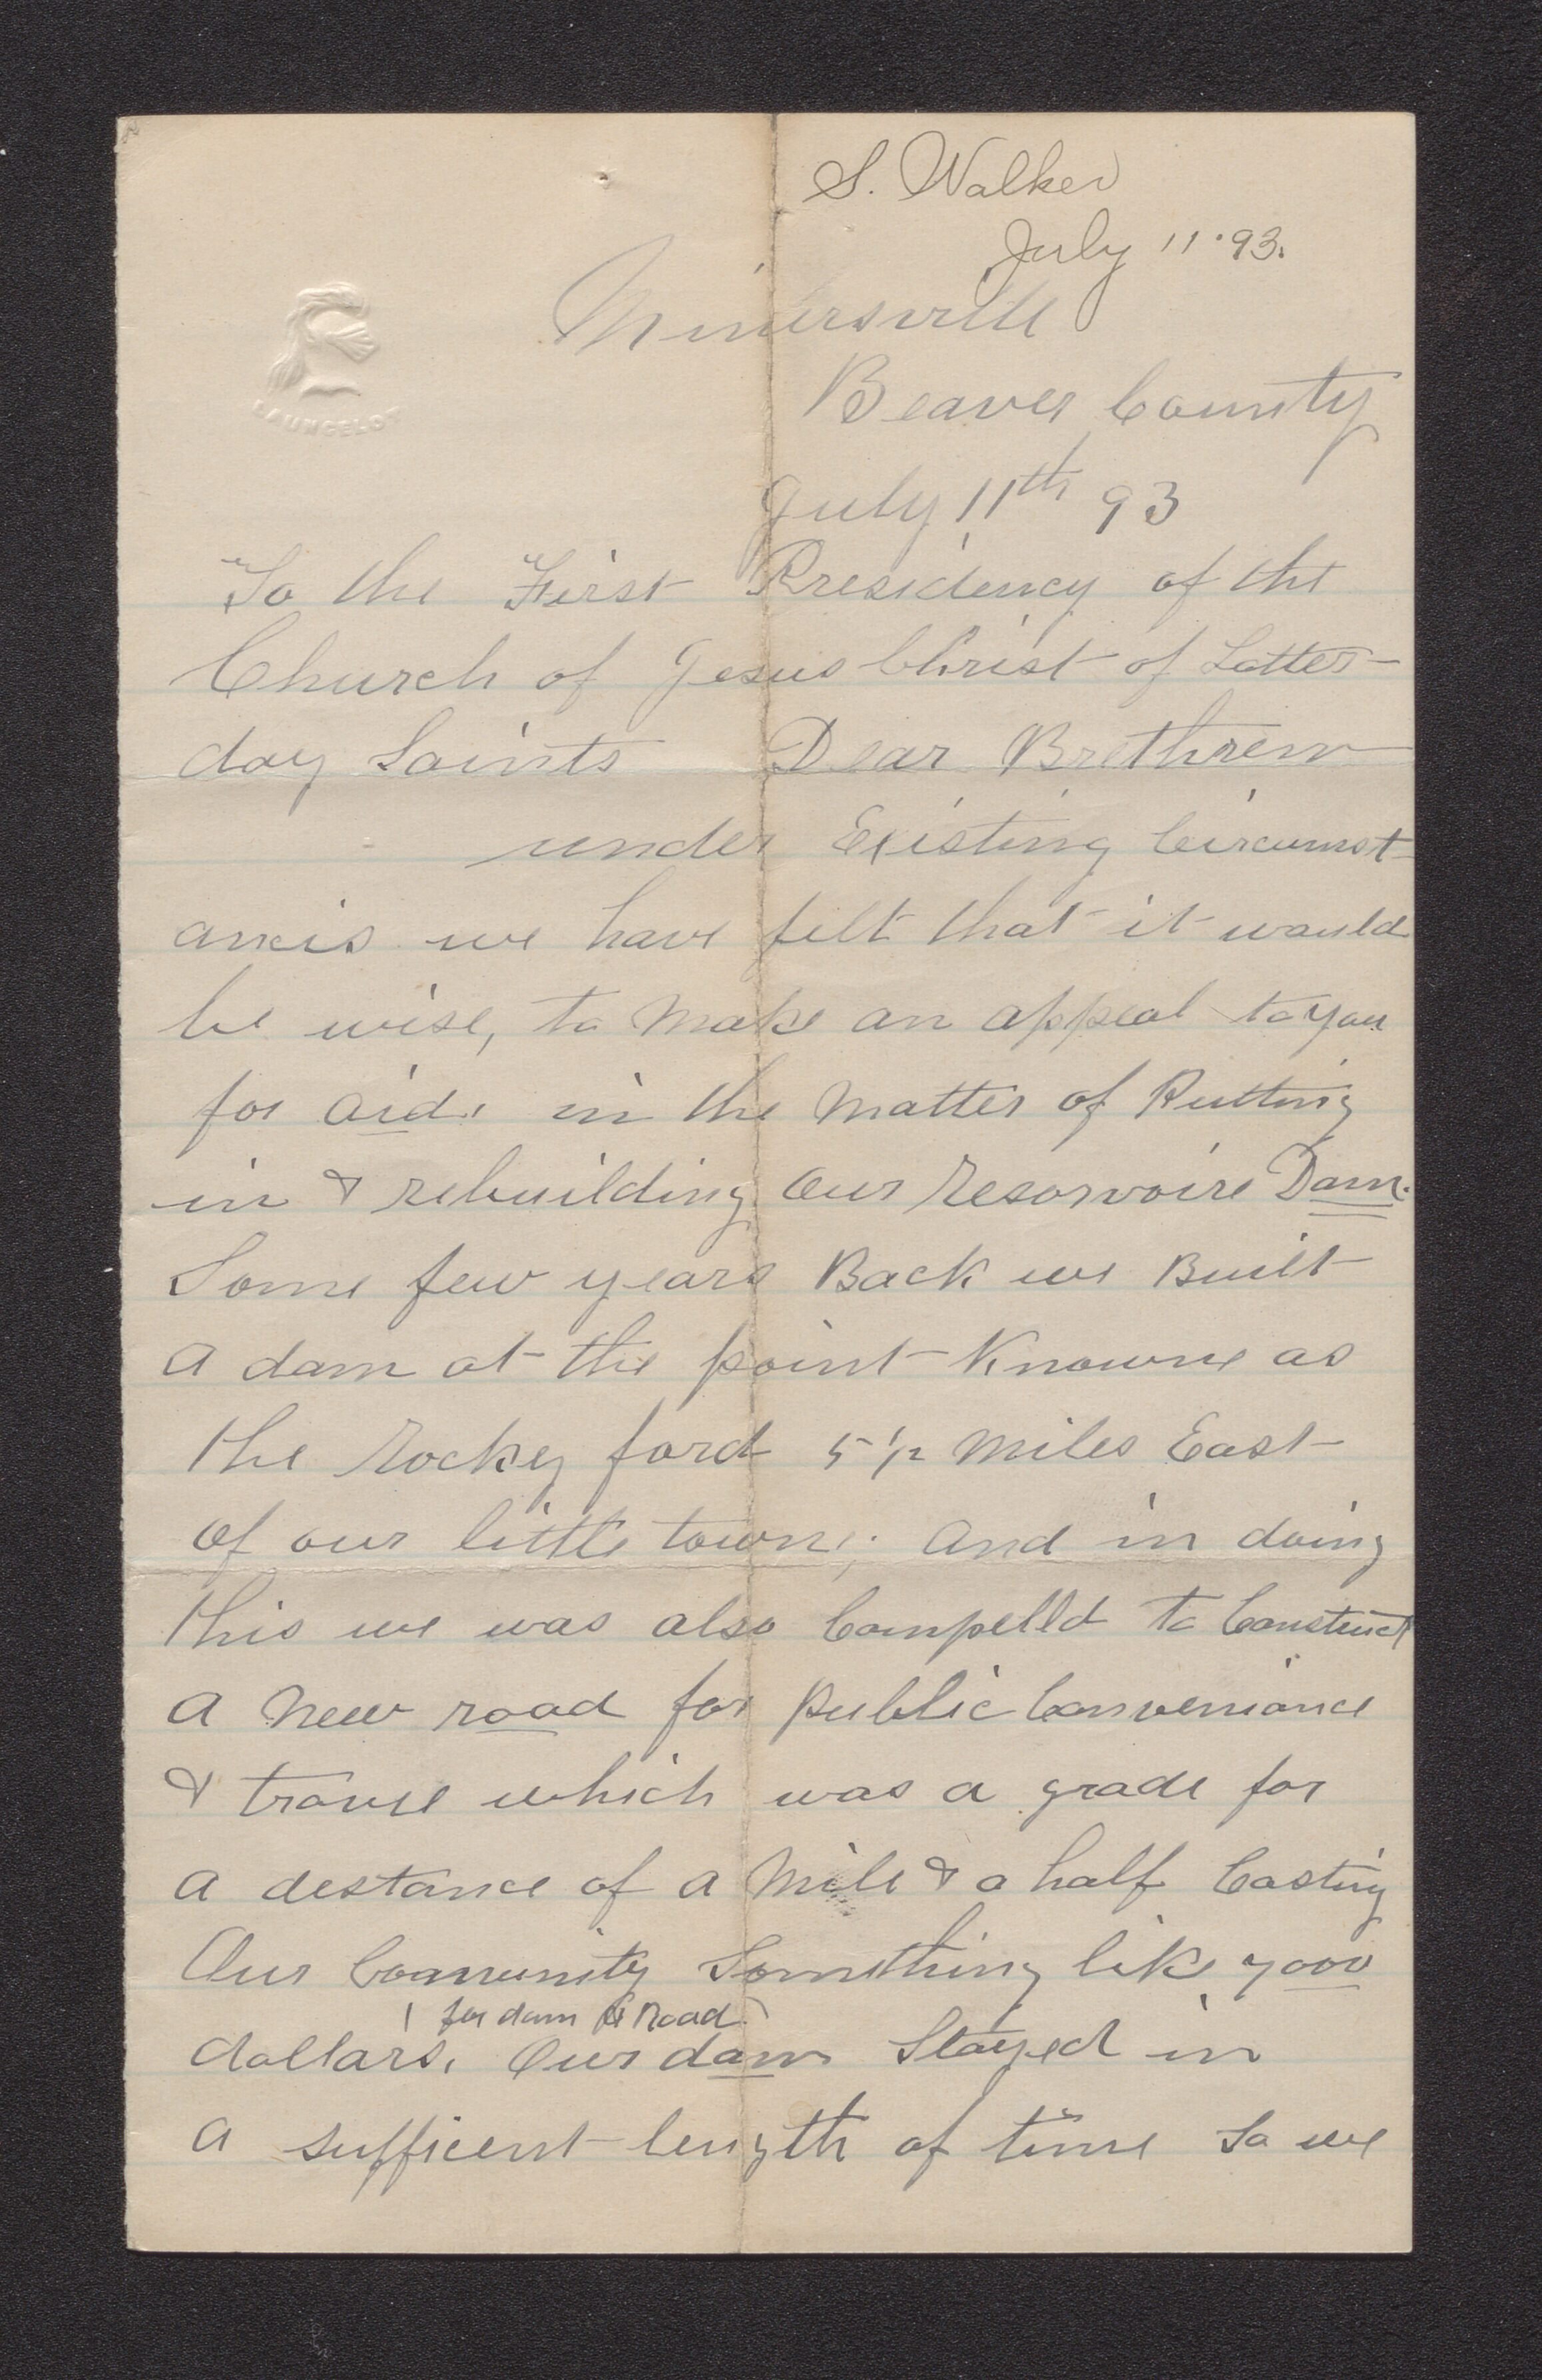 S. Walker
July 11 · 93.
LAUNCELOT
Minersville
Beaver County
July 11th 93
To the First Presidency of the
Church of Jesus Christ of Latter-
day Saints Dear Brethren
under Existing Circumst-
ancis we have felt that it would
be wise, to make an appeal to you
for aid. in the matter of Putting
in & rebuilding our resorvoire Dam.
Some few years Back we Built
a dam at the point Knowne as
the rockey ford 5 1/2 miles East
of our little towne; and in doing
this we was also Compelld to Construct
a new road for public Conveniance
& travle which was a grade for
a destance of a mile & a half Costing
Our Community Something like 7000
for dam & Road
dollars, Our dam Stayed in
a sufficent length of time so we